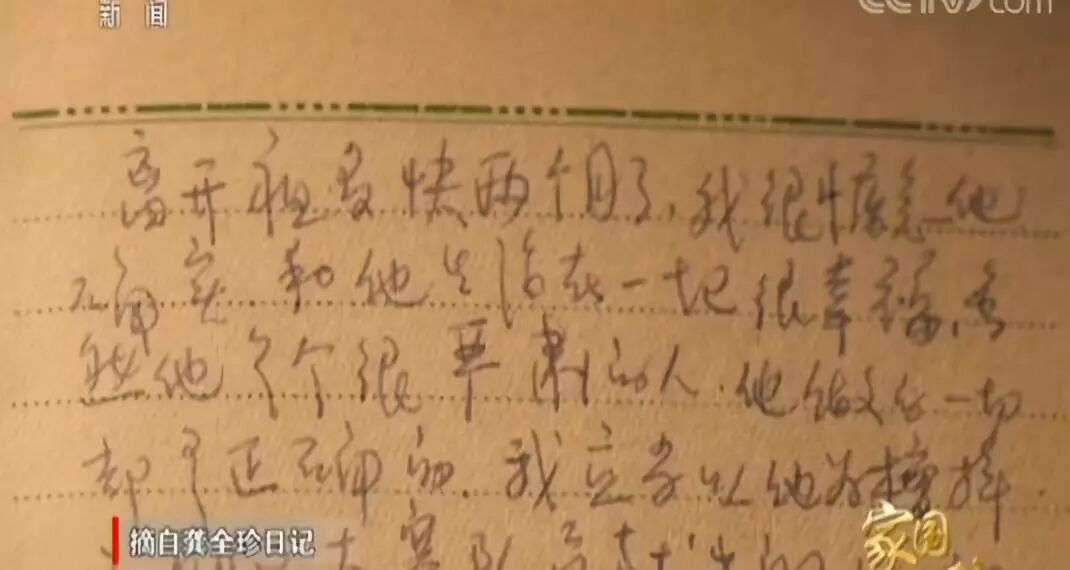 新闻
CCTV.com
离开祖昌快两个月了，我很惦念他
确实，和他生活在一起很幸福，虽
然他是个很严肃的人。他做的一切
都是正确的。我应当以他为榜样。
摘自龚全珍日记
家国